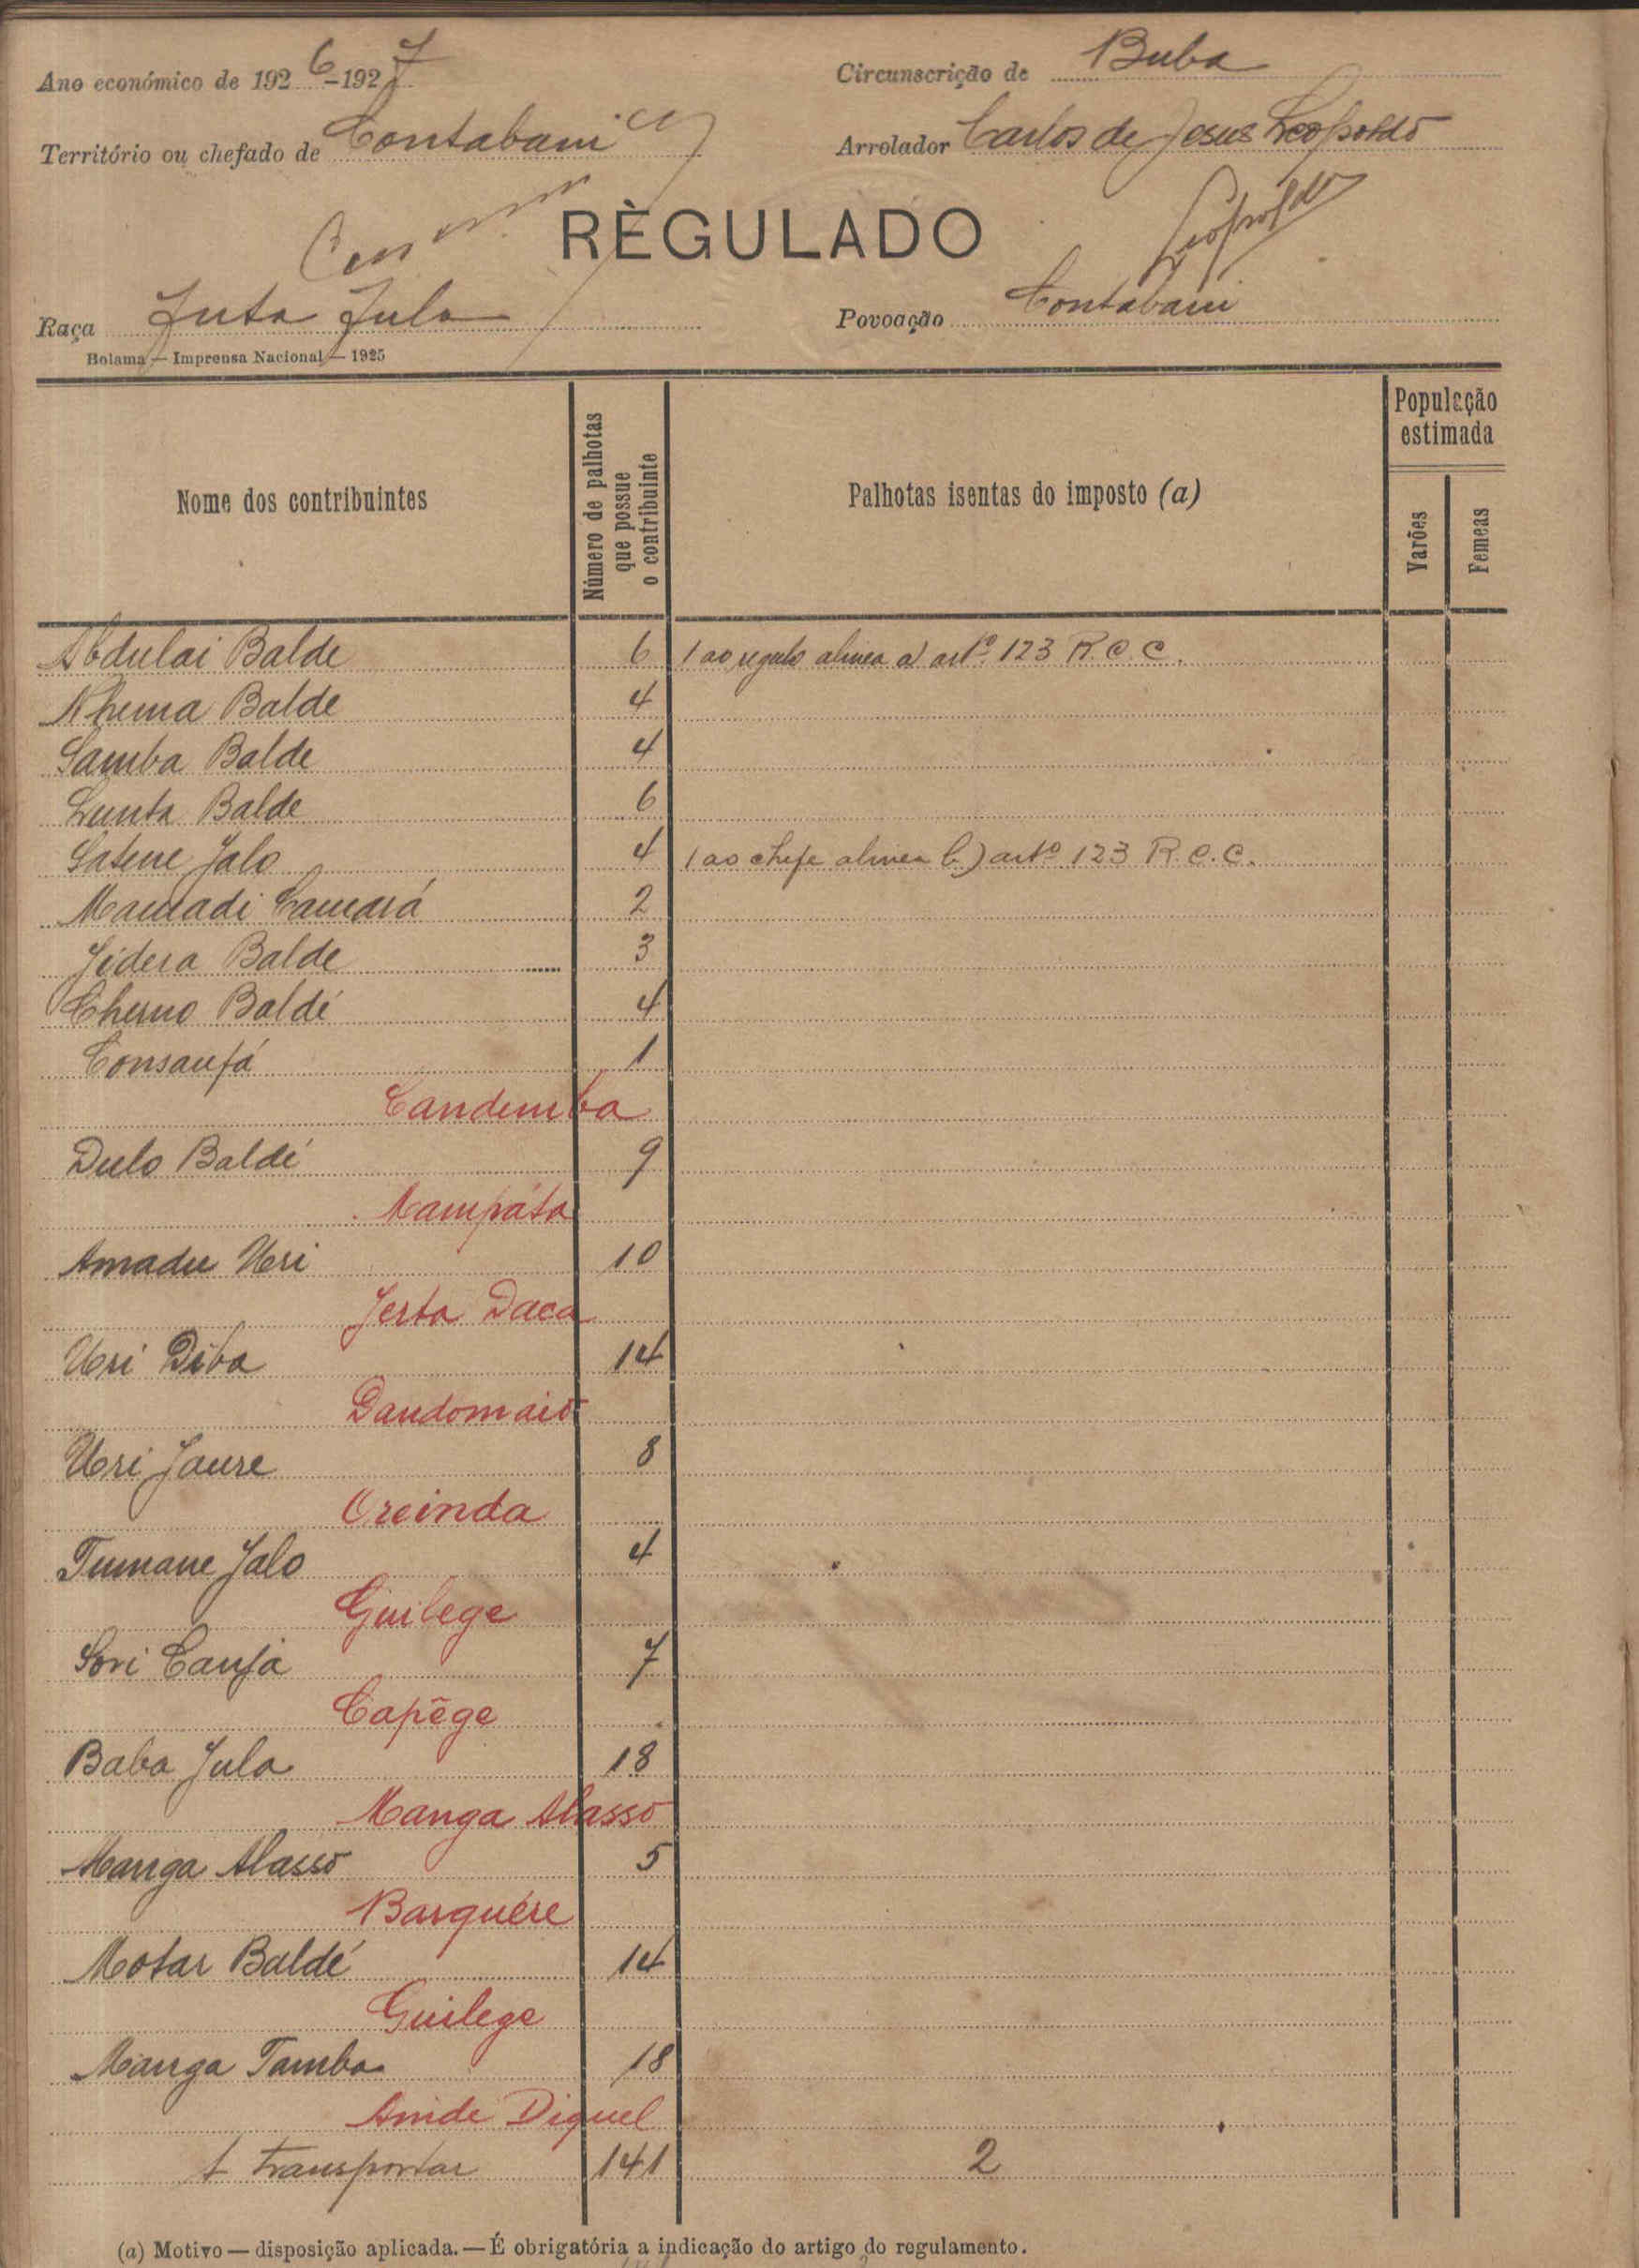 Ano económico de 1926-1927
Circunscrição de Buba
Território ou chefado de Contabani
Arrolador Carlos de Jesus Leopoldo
RÈGULADO
Leopoldo
Raça Futa Fula
Povoação Contabani
Bolama — Imprensa Nacional — 1925
Nome dos contribuintes
Número de palhotas que possue o contribuinte
Palhotas isentas do imposto (a)
População estimada
Varões
Femeas
Abdulai Balde 6 1 ao regulo alinea a) artº. 123 R.C.C.
Balde 4
Samba Balde 4
Balde 6
Satene Jalo 4 1 ao chefe alinea b) artº 123 R.C.C.
Mamadi Camará 2
Jidera Balde 3
Cherno Baldé 4
Consanfá 1
Candemba
Dulo Baldé 9
Mampáta
Amadu Uri 10
Daca
Uri Diba 14
Uri Jaure 8
Oreinda
Tumane Jalo 4
Guilege
Sori Canja 7
Capêge
Baba Jula 18
Manga Alasso
Manga Alasso 5
Barquére
Motar Baldé 14
Guilege
Manga Tamba 18
Diquel
A transportar 141 2
(a) Motivo — disposição aplicada. — É obrigatória a indicação do artigo do regulamento.